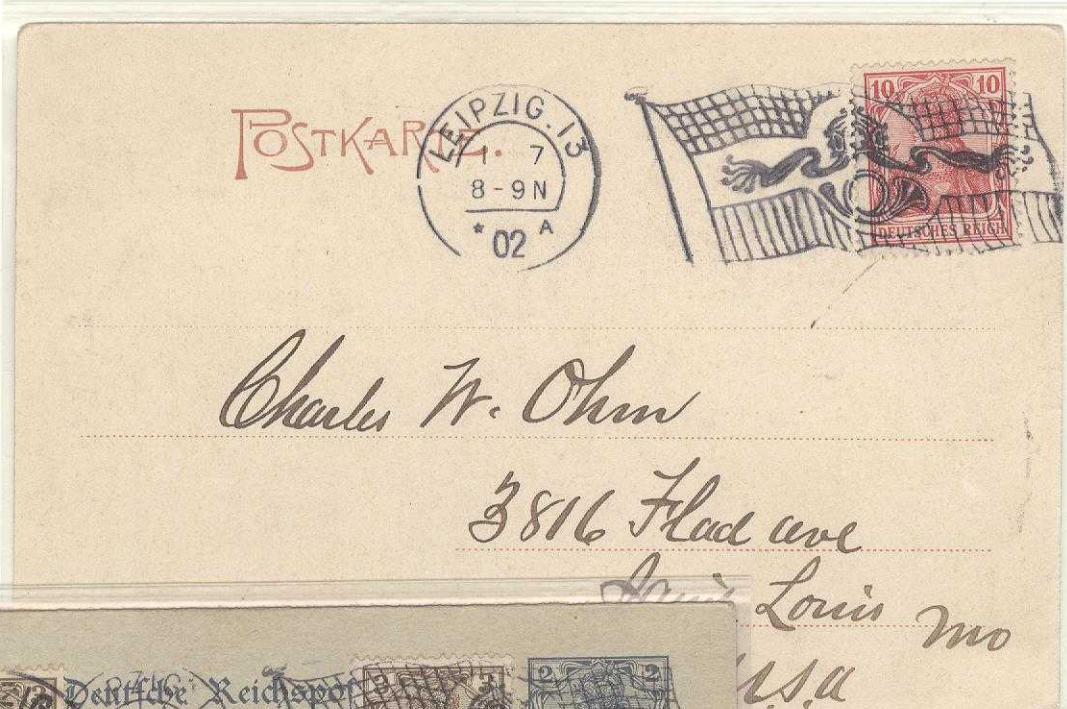 POSTKARTE.
LEIPZIG. 13
1 7
8-9N
* 02 A
10 10
DEUTSCHES REICH
Charles W. Ohm
3816 Flad ave
Louis Mo
Deutsche Reichspost
3 3
2 2